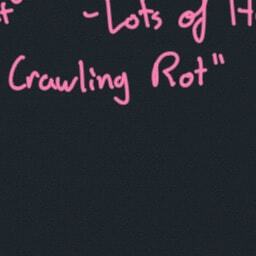 -Lots of
Crawling Rot"